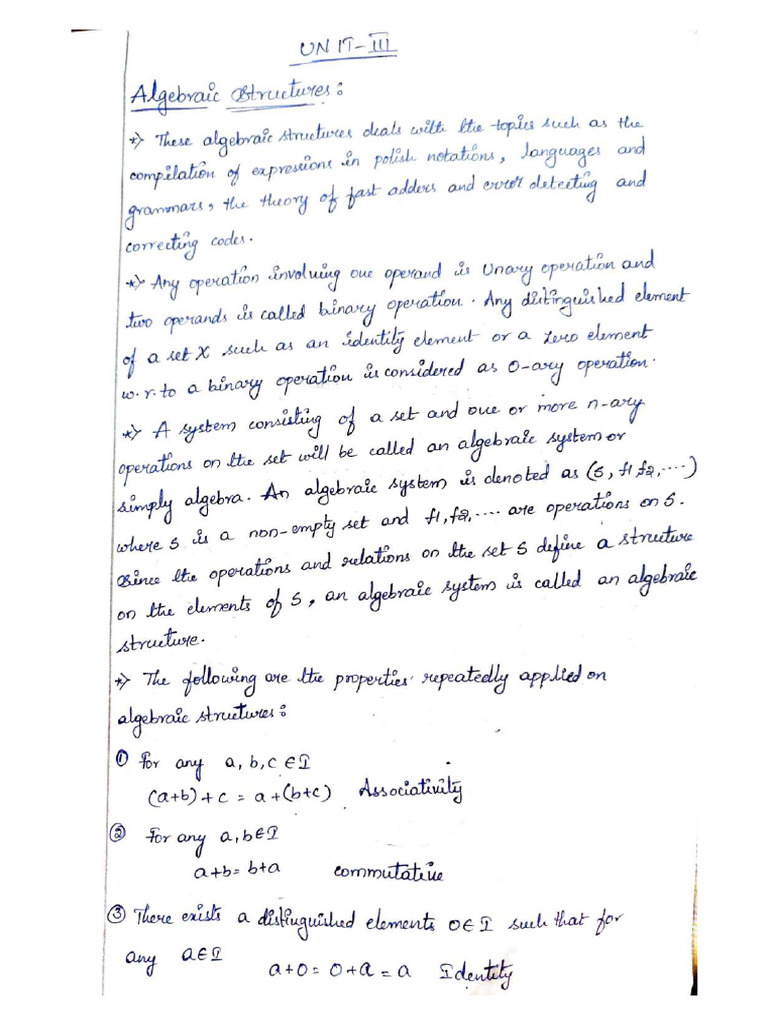 UNIT-III
Algebraic Structures:
*> These algebraic structures deals with the topics such as the
compilation of expressions in polish notations, languages and
grammars, the theory of fast adders and error detecting and
correcting codes.
*> Any operation involving one operand is Unary operation and
two operands is called binary operation. Any distinguished element
of a set X such as an identity element or a zero element
w.r.to a binary operation is considered as 0-ary operation.
*> A system consisting of a set and one or more n-ary
operations on the set will be called an algebraic system or
simply algebra. An algebraic system is denoted as (S, f1,f2,....)
where S is a non-empty set and f1,f2,.... are operations on S.
Since the operations and relations on the set S define a structure
on the elements of S, an algebraic system is called an algebraic
structure.
*> The following are the properties repeatedly applied on
algebraic structures:
① For any a, b, c ∈ I
(a+b)+c = a+(b+c) Associativity
② For any a, b ∈ I
a+b = b+a commutative
③ There exists a distinguished elements 0 ∈ I such that for
any a ∈ I a+0 = 0+a = a Identity